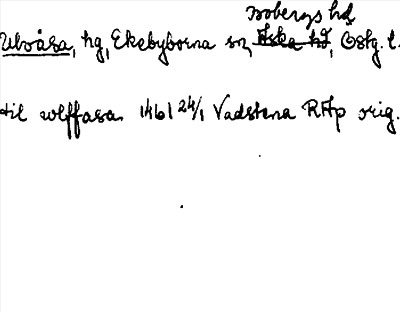 bobergs hd
Ulvåsa, hg, Ekebyborna sn, Aska hd, Östg. l.
til wlffasa 1461 24/1 Vadstena RAp orig.